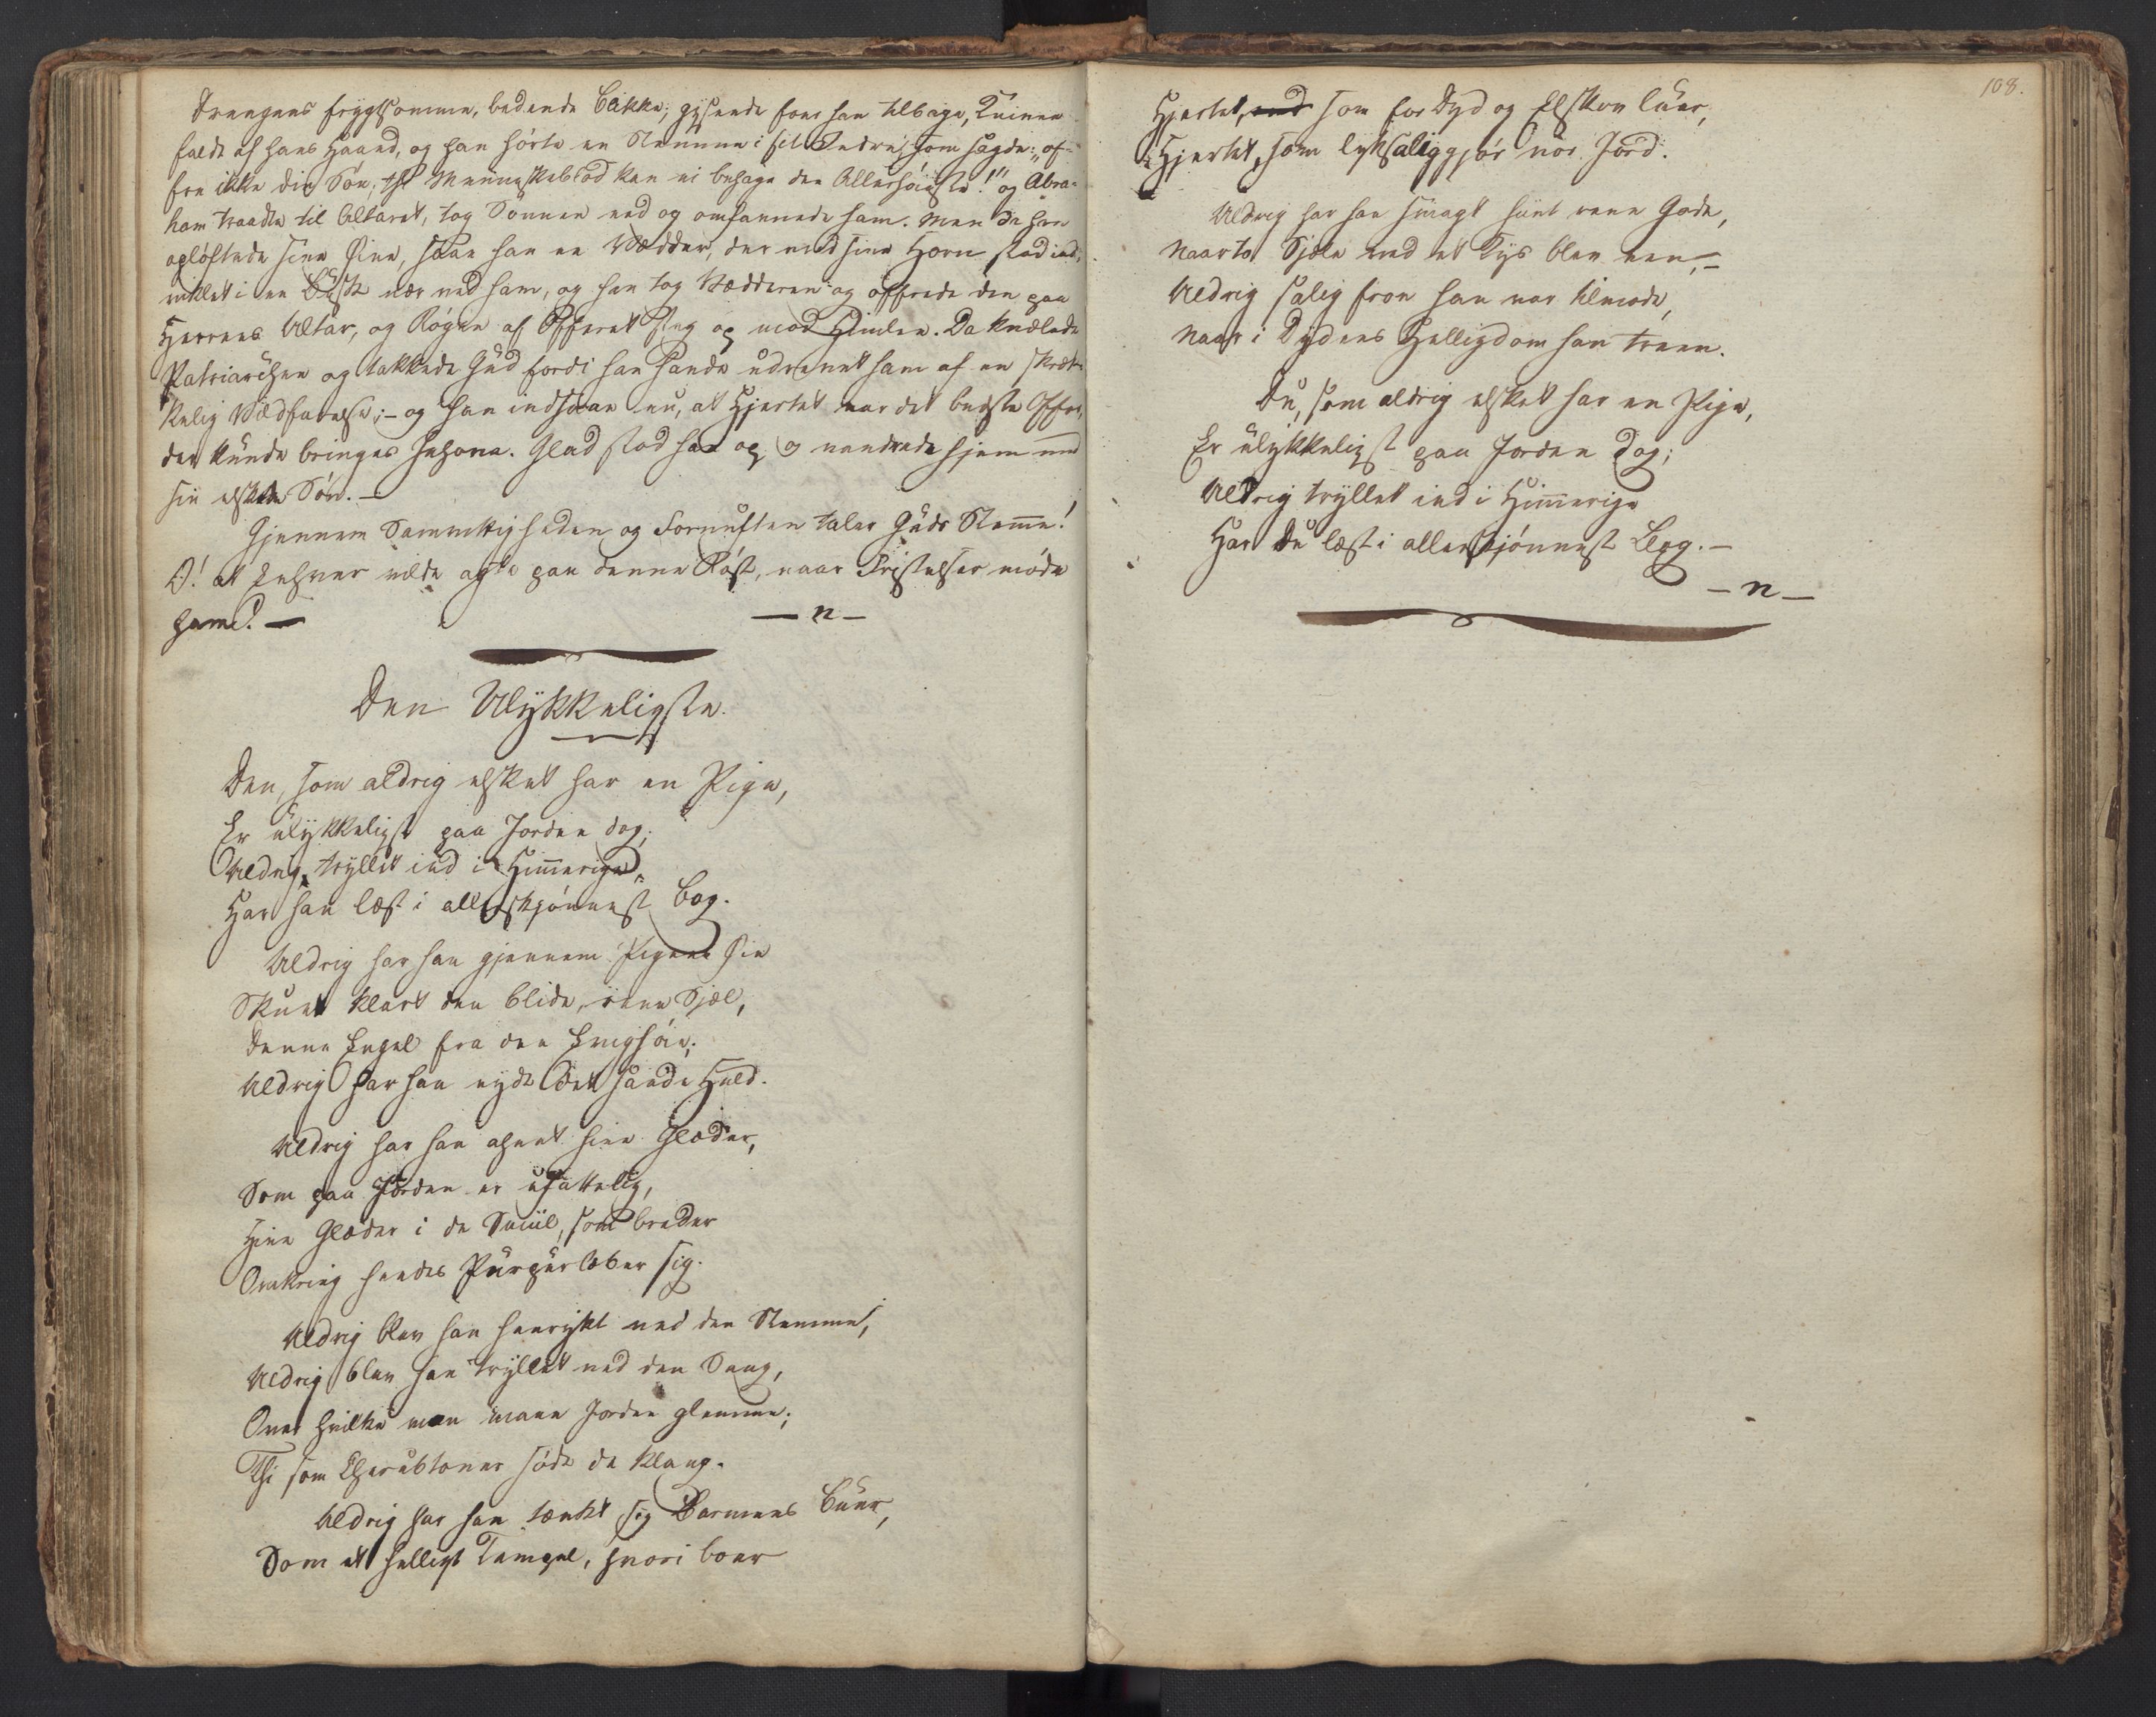 Drengens frygtsomme, bedende Blikke; gysende foer han tilbage, Kniven
faldt af hans Haand, og han hørte en Stemme i sit Indre, som sagde: „of-
fre ikke din Søn, thi Menneskeblod kan ei behage den Allerhøieste!" og Abra-
ham traadte til Altaret, tog Sønnen ned og omfavnede ham. Men da han
opløftede sine Øine, saae han en Vædder, der med sine Horn stod ind-
viklet i en Busk nær ved ham, og han tog Vædderen og offrede den paa
Herrens Altar, og Røgen af Offeret steg op mod Himlen. Da knælede
Patriarchen og takkede Gud fordi han havde udrevet ham af en skræk-
kelig Vildfarelse; – og han indsaae nu, at Hjertet var det bedste Offer,
der kunde bringes Jehova. Glad stod han op og vandrede hjem med
sin elskte Søn. –
Gjennem Samvittigheden og Fornuften taler Guds Stemme!
O! at Enhver vilde agte paa denne Røst, naar Fristelser møde
ham! –
– n –
Den Ulykkeligste.
Den, som aldrig elsket har en Pige,
Er ulykkeligst paa Jorden dog;
Aldrig, tryllet ind i Himmerige,
Har han læst i allerskjønnest Bog.
Aldrig har han gjennem Pigens Øie
Skuet klart den blide, rene Sjæl,
Denne Engel fra den Evighøie;
Aldrig har han nydt det sande Held.
Aldrig har han ahnet hine Glæder,
Som paa Jorden er ufattelig,
Hine Glæder i de Smiil, som breder
Omkring hendes Purpurlæber sig.
Aldrig blev han henrykt ved den Stemme,
Aldrig blev han tryllet ved den Sang,
Over hvilke man maae Jorden glemme;
Thi som Cherubtoner sødt de klang.
Aldrig har han tænkt sig Barmens Buer,
Som et helligt Tempel, hvori boer
108.
Hjertet, som for Dyd og Elskov luer,
Hjertet, som lyksaliggjør vor Jord.
Aldrig har han smagt hiint rene Gode,
Naar to Sjæle ved et Kys blev een, –
Aldrig salig from han var tilmode,
Naar i Dydens Helligdom han treen.
Du, som aldrig elsket har en Pige,
Er ulykkeligst paa Jorden dog;
Aldrig tryllet ind i Himmerige
Har Du læst i allerskjønnest Bog. –
– n –